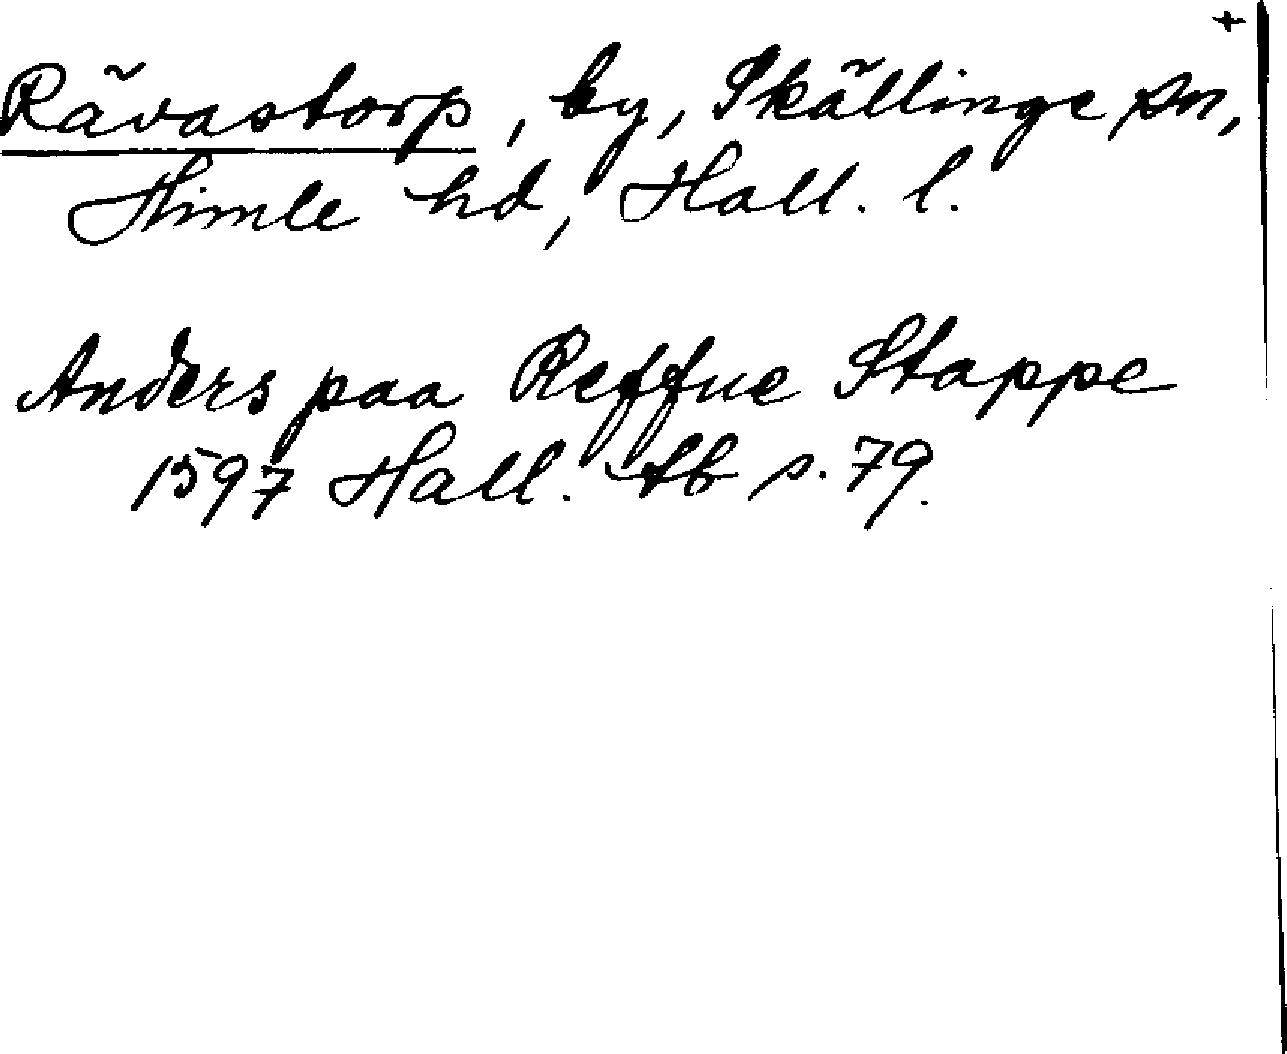 +
Rävastorp, by, Skällinge sn,
Himle hd, Hall. l.
Anders paa Reffue Stappe
1597 Hall. tb s. 79.